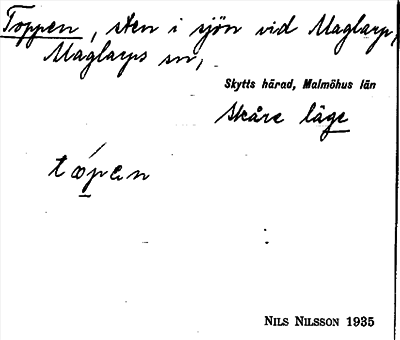 Toppen, sten i sjön vid Maglarp,
Maglarps sn,
Skytts härad, Malmöhus län
Skåre läge
tǿpan
NILS NILSSON 1935